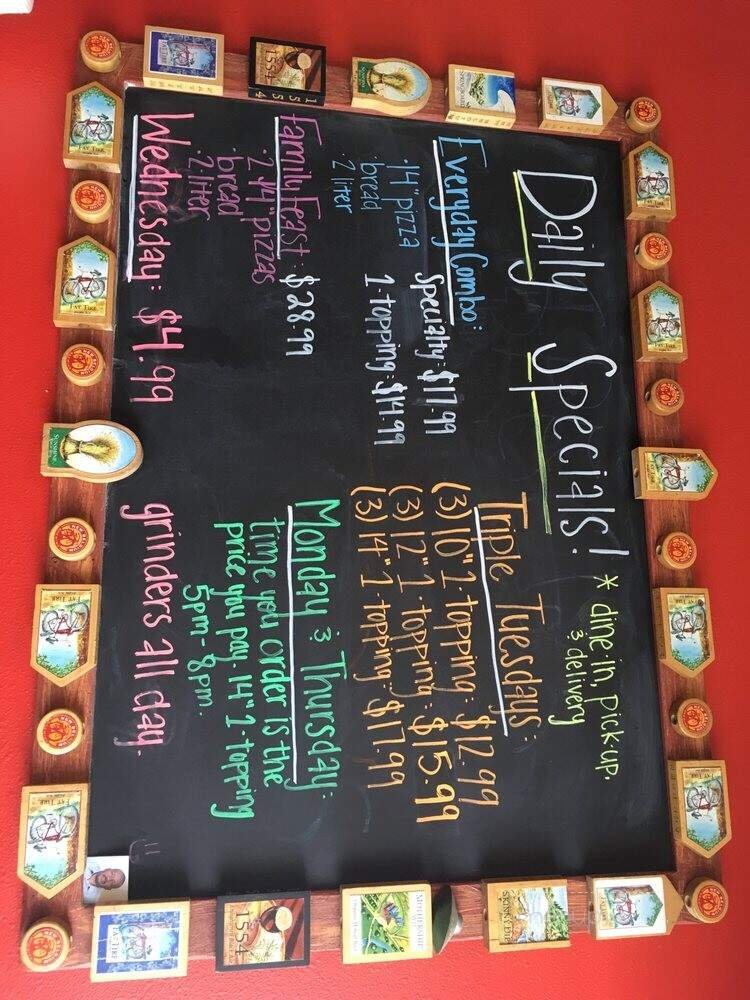 Daily Specials! * dine in, pick-up,
& delivery
Everyday Combo:
• 14" pizza
bread
2 liter
Specialty: $17.99
1-topping: $14.99
Family Feast: $28.99
• 2 14" pizzas
• bread
• 2-liter
Triple Tuesdays:
(3) 10" 1-topping: $12.99
(3) 12" 1-topping: $15.99
(3) 14" 1-topping: $17.99
Monday & Thursday:
time you order is the
price you pay. 14" 1-topping
5pm-8pm.
Wednesday: $4.99 grinders all day.
FAT TIRE
1554
1554
FAT TIRE
FAT TIRE
FAT TIRE
FAT TIRE
FAT TIRE
1554